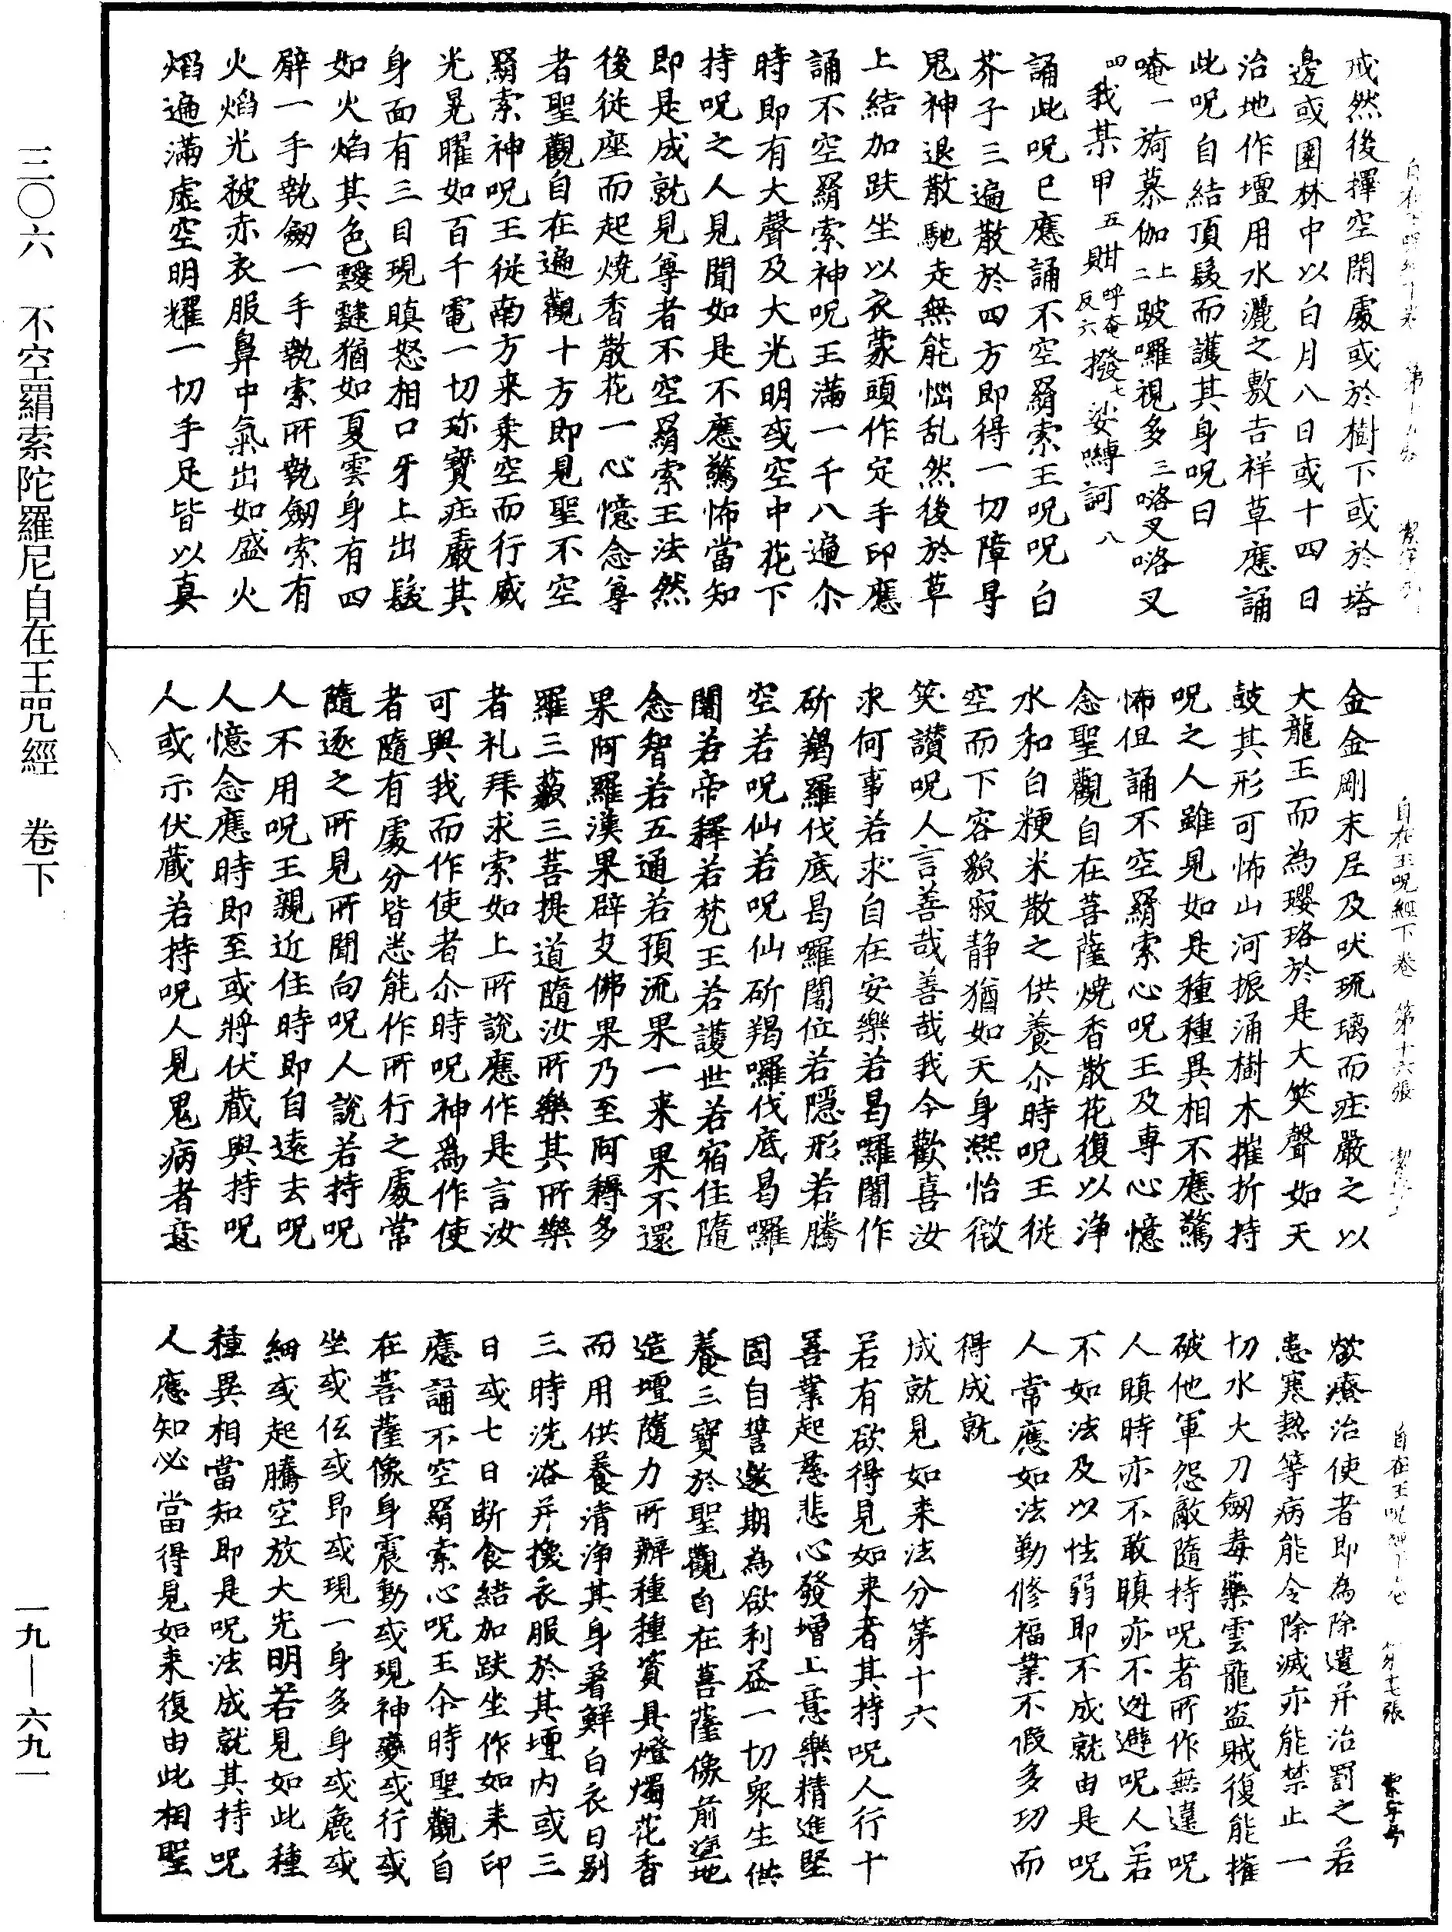 三〇六　不空羂索陀羅尼自在王咒經　卷下
一九—六九一
戒然後擇空閑處或於樹下或於塔
邊或園林中以白月八日或十四日
治地作壇用水灑之敷吉祥草應誦
此呪自結頂髮而護其身呪曰
唵一旖慕伽上二跛囉視多三咯叉咯叉
四我某甲五䤈呼奄反六撥七娑嚩訶八
誦此呪已應誦不空羂索王呪呪白
芥子三遍散於四方即得一切障㝵
鬼神退散馳走無能惱乱然後於草
上結加趺坐以衣蒙頭作定手印應
誦不空羂索神呪王滿一千八遍尒
時即有大聲及大光明或空中花下
持呪之人見聞如是不應驚怖當知
即是成就見尊者不空羂索王法然
後從座而起燒香散花一心憶念尊
者聖觀自在遍觀十方即見聖不空
羂索神呪王從南方来乘空而行威
光晃曜如百千電一切珎寶莊嚴其
身面有三目現瞋怒相口牙上出髮
如火焰其色靉靆猶如夏雲身有四
臂一手執劒一手執索所執劒索有
火焰光被赤衣服鼻中氣出如盛火
焰遍滿虛空明耀一切手足皆以真
自在王呪經下卷　第十六張
金金剛末尼及吠琉璃而莊嚴之以
大龍王而為瓔珞於是大笑聲如天
鼓其形可怖山河振涌樹木摧折持
呪之人雖見如是種種異相不應驚
怖但誦不空羂索心呪王及專心憶
念聖觀自在菩薩燒香散花復以淨
水和白粳米散之供養尒時呪王從
空而下容貌寂静猶如天身熙怡微
笑讚呪人言善哉善哉我今歡喜汝
求何事若求自在安樂若曷囉闍作
斫羯羅伐底曷囉闍位若隱形若騰
空若呪仙若呪仙斫羯囉伐底曷囉
闍若帝釋若梵王若護世若宿住隨
念智若五通若預流果一来果不還
果阿羅漢果辟支佛果乃至阿耨多
羅三藐三菩提道隨汝所樂其所樂
者礼拜求索如上所說應作是言汝
可與我而作使者尒時呪神為作使
者隨有處分皆悉能作所行之處常
隨逐之所見所聞向呪人說若持呪
人不用呪王親近住時即自遠去呪
人憶念應時即至或將伏藏與持呪
人或示伏藏若持呪人見鬼病者意
欲療治使者即為除遣并治罰之若
患寒熱等病能令除滅亦能禁止一
切水火刀劒毒藥雲龍盜賊復能摧
破他軍怨敵隨持呪者所作無違呪
人瞋時亦不敢瞋亦不迯避呪人若
不如法及以怯弱即不成就由是呪
人常應如法勤修福業不假多功而
得成就
成就見如来法分第十六
若有欲得見如来者其持呪人行十
善業起慈悲心發增上意樂精進堅
固自誓邀期為欲利益一切衆生供
養三寶於聖觀自在菩薩像前塗地
造壇隨力所辦種種資具燈燭花香
而用供養清淨其身著鮮白衣日別
三時洗浴并換衣服於其壇内或三
日或七日断食結加趺坐作如来印
應誦不空羂索心呪王尒時聖觀自
在菩薩像身震動或現神變或行或
坐或任或昂或現一身多身或麁或
細或起騰空放大光明若見如此種
種異相當知即是呪法成就其持呪
人應知必當得見如来復由此相聖